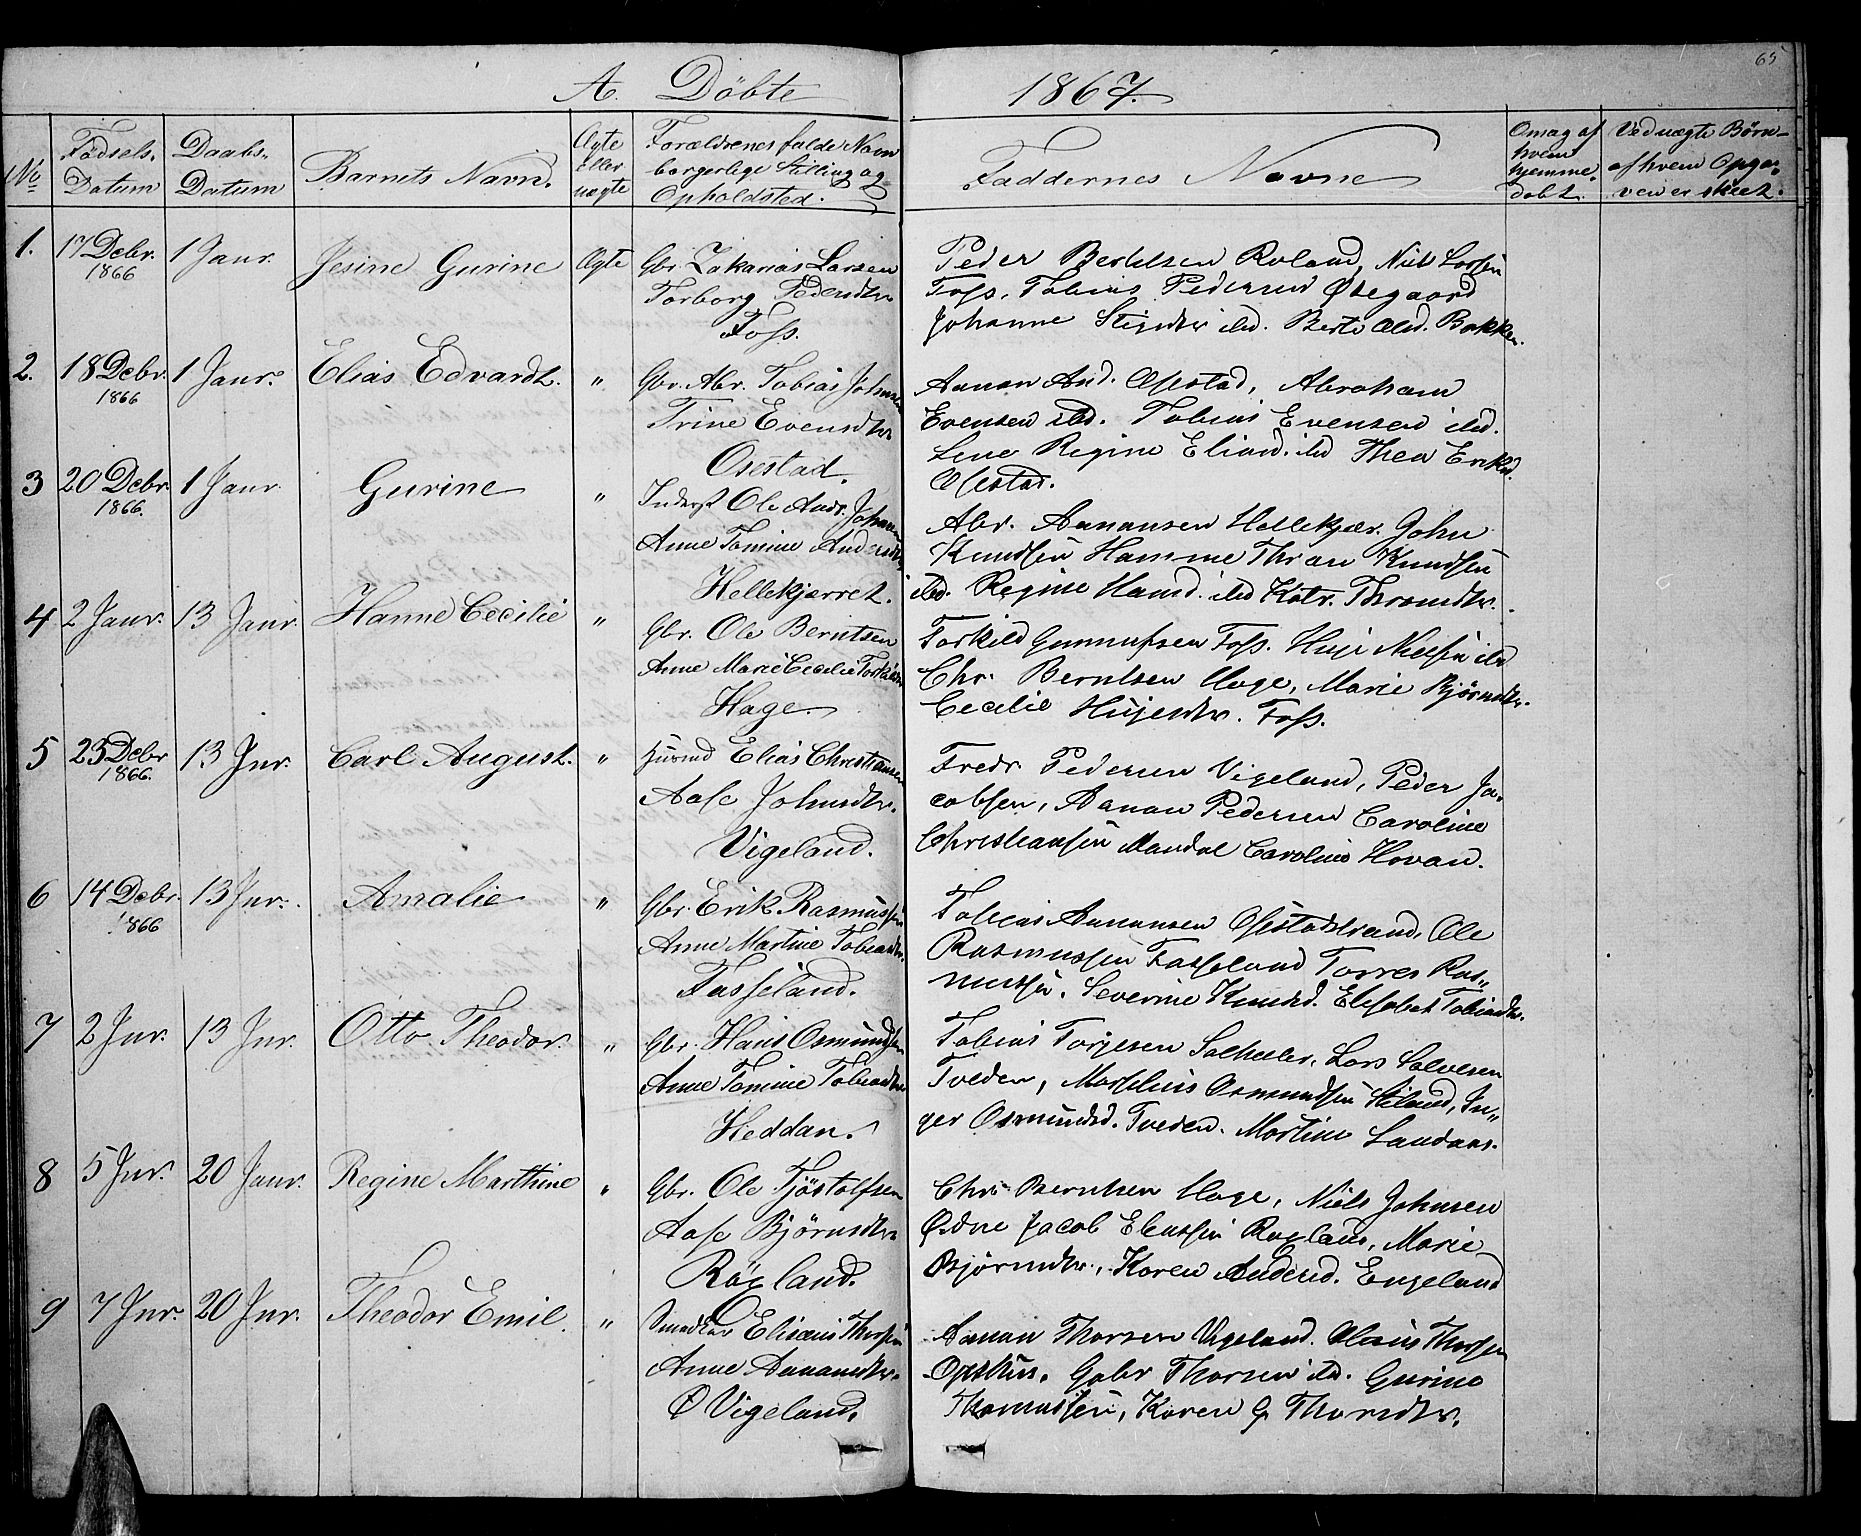 65
A. Döbte 1867.
No
Fødsels-
Datum
Daabs-
Datum
Barnets Navn.
Ægte
eller
uægte
Forældrenes fulde Navn
borgerlige Stilling og
Opholdsted.
Faddernes Navne
Om og af
hvem
hjemme-
døbt.
Ved uægte Børn
af hvem Opga-
ven er skeet.
1. 17 Debr. 1866 1 Janr. Jesine Gurine Ægte Gbr. Zakarias Larsen
Torborg Pedersdtr
Foss.
Peder Bertelsen Roland, Niels Larsen
Foss, Tobias Pedersen Østegaard
Johanne Stiesdtr ibd. Berte Olsd. Bakken.
2. 18 Debr. 1866 1 Janr. Elias Edvardt. " Gbr. Abr. Tobias Johnsen
Trine Evensdtr
Osestad.
Aanon And. Osestad, Abraham
Evensen ibd. Tobias Evensen ibd.
Lene Regine Eliasd. ibd Thea Eriksd.
Osestad.
3 20 Debr. 1866. 1 Janr. Gurine " Inderst Ole Andr. Johan
Anne Tomine Andersdtr
Hellekjærret.
Abr. Aanansen Hellekjær. John
Knudsen Hamme Thron Knudsen
ibd. Regine Hansd. ibd Katr. Thronsdtr.
4 2 Janr. 13 Janr. Hanne Cecilie " Gbr. Ole Berntsen
Anne Marie Cecelie Torkildsd
Hage.
Torkild Gunnufsen Foss. Huje Nielsen ibd
Chr. Berntsen Hage, Marie Bjørnsdtr.
Cecilie Hujesdtr. Foss.
5 23 Debr 1866. 13 Jnr. Carl August. " Husmd Elias Christiansen
Aase Johnsdtr.
Vigeland.
Fredr. Pedersen Vigeland, Peder Ja-
cobsen, Aanan Pedersen Caroline
Christiansen Mandal Caroline Hovan.
6 14 Debr. 1866 13 Jnr. Amalie " Gbr. Erik Rasmussen
Anne Martine Tobiasdtr.
Fasseland.
Tobias Aanansen Osestadstrand, Ole
Rasmussen Fasseland Torres Ras-
mussen. Severine Knudsd. Elisabet Tobiasdtr.
7 2 Jnr. 13 Jnr. Otto Theodor. " Gbr. Hans Osmundsen
Anne Tomine Tobiasdtr
Heddan.
Tobias Torjesen Lars Salvesen
Tveden, Osmundsen In-
ger Osmundsd. Tveden. Martine Landaas.
8 5 Jnr. 20 Janr. Regine Marthine " Gbr. Ole Tjöstolfsen
Aase Björnsdtr
Röyland.
Chr. Berntsen Hage, Niels Johnsen
Jacob Røyland, Marie
Bjørnsdtr., Karen Andersd. Engeland
9 7 Jnr. 20 Jnr. Theodor Emil. " Elisæus Thorsen
Anne Aanansdtr.
Ö Vigeland.
Aanan Thorsen Vigeland. Thorsen
Gabr Thorsen ibd. Gurine
Karen G Thorsdtr.